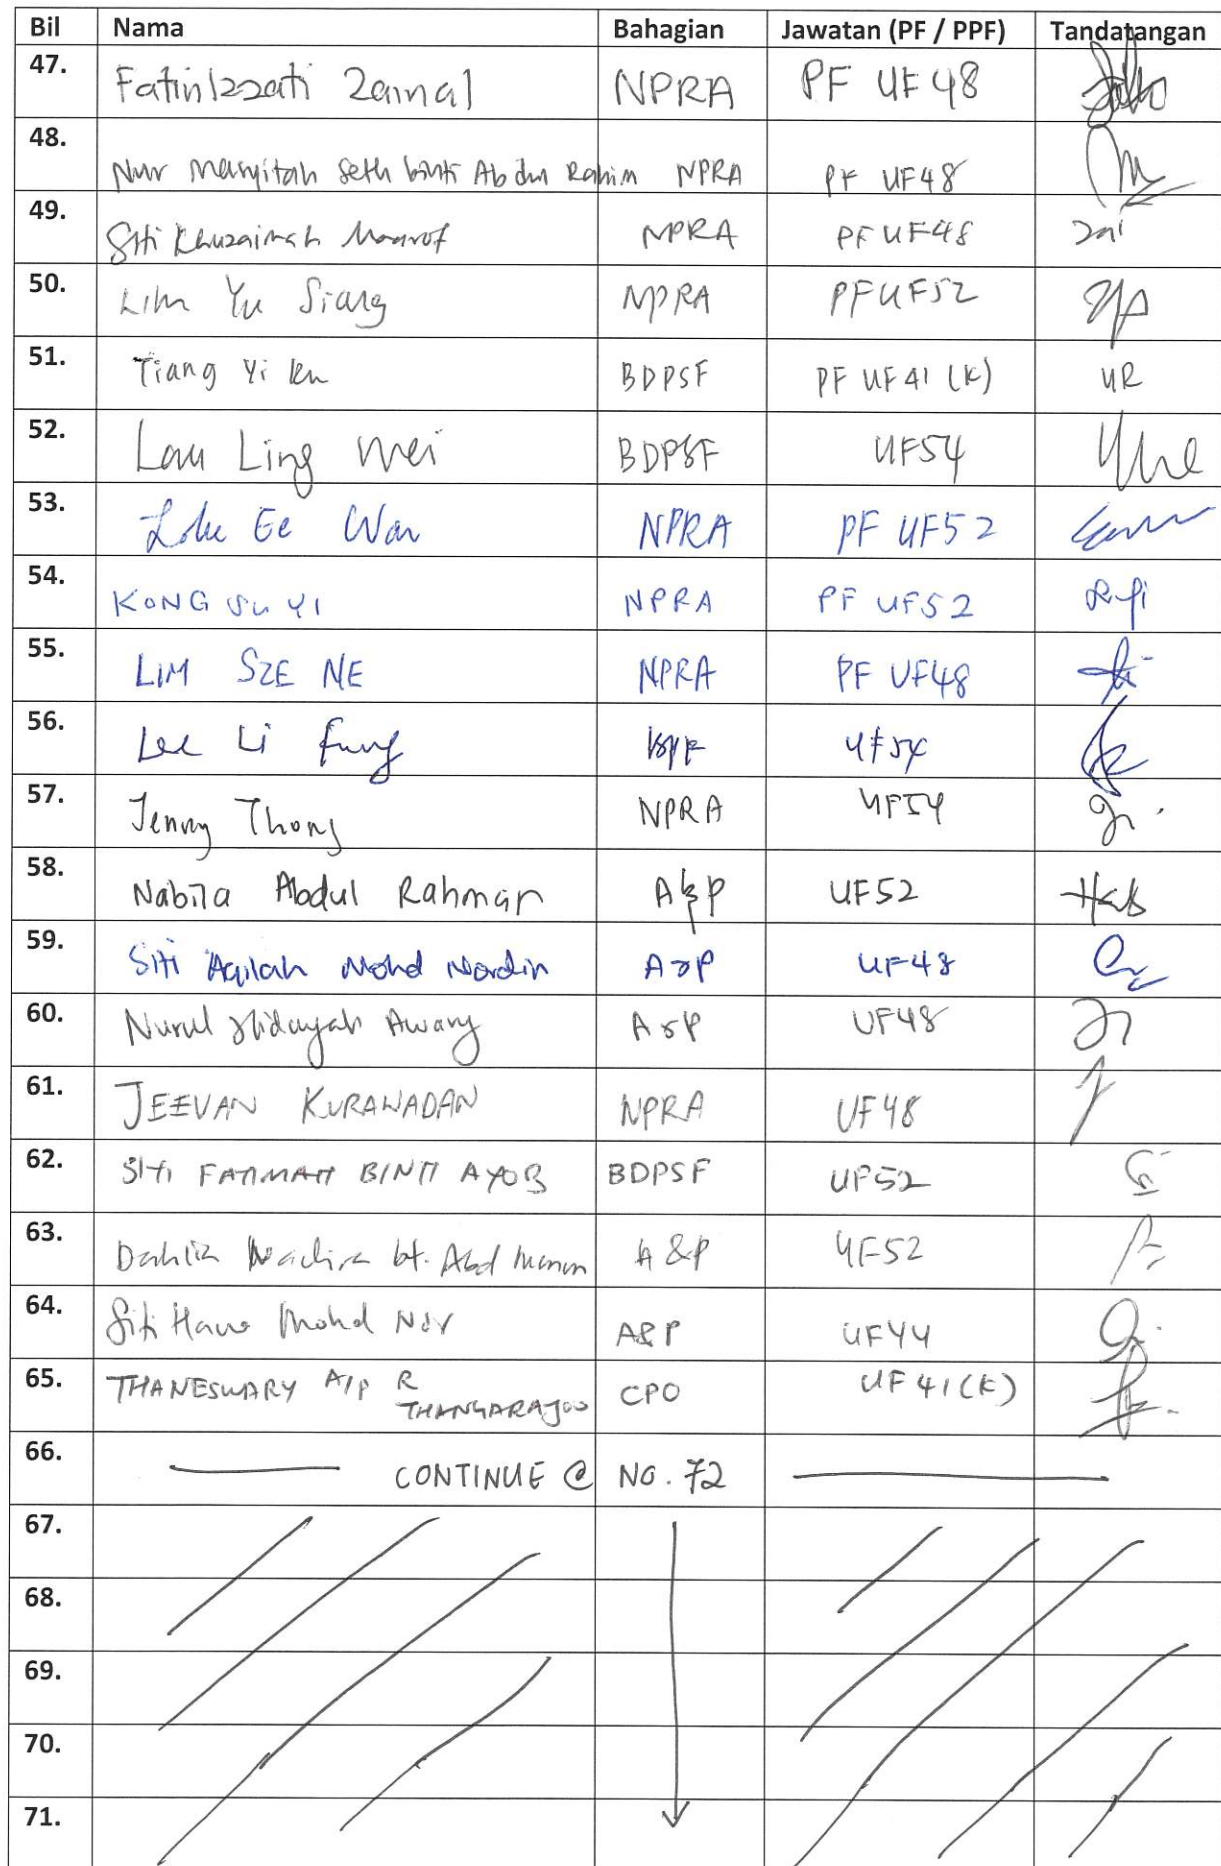 Bil Nama Bahagian Jawatan (PF / PPF) Tandatangan
47. Fatin Izzati Zainal NPRA PF UF48
48. Nur Masyitah Seth binti Abdul Rahim NPRA PF UF48
49. Siti Khuzaimah Maarof NPRA PF UF48
50. Lim Yu Siang NPRA PF UF52
51. Tiang Yi BDPSF PF UF41 (K)
52. Lau Ling Mei BDPSF UF54
53. Ee Wan NPRA PF UF52
54. KONG SU YI NPRA PF UF52
55. LIM SZE NE NPRA PF UF48
56. Lee Li Fung UF54
57. Jenny Thong NPRA UF54
58. Nabila Abdul Rahman A&P UF52
59. Siti Aqilah Mohd Nordin A&P UF48
60. Nurul Hidayah Awang A&P UF48
61. JEEVAN KURANADAN NPRA UF48
62. SITI FATIMAH BINTI AYOB BDPSF UF52
63. Dahlia Nadira bt. Abd Manan A&P UF52
64. Siti Hawa Mohd Nor A&P UF44
65. THANESWARY A/P R CPO UF41(K)
THANGARAJOO
66. CONTINUE @ NO. 72
67.
68.
69.
70.
71.